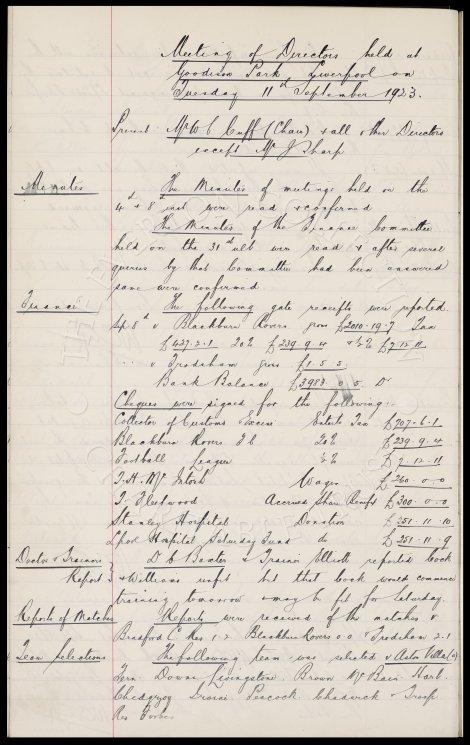 Meeting of Directors held at
Goodison Park, Liverpool on
Tuesday 11th September 1923.
Present Mr W C Cuff (Chair) & all other Directors
except Mr J Sharp
Minutes The Minutes of meetings held on the
4th & 8th inst were read & confirmed
The Minutes of the Finance Committee
held on the 31st ulto were read & after several
queries by that Committee had been answered
same were confirmed.
Finance The following gate receipts were reported
Sep 8th v Blackburn Rovers gross £2010.19.7 Tax
£427.2.1 20% £239.9.4 & ½% £7.12.11
v Frodsham gross £1.5.3
Bank Balance £3983.0.5 Dr
Cheques were signed for the following:-
Collector of Customs Excise Entertt Tax £707.6.1
Blackburn Rovers F C 20% £239.9.4
Football League ½% £7.12.11
T. H. McIntosh Wages £260.0.0
T. Fleetwood Accrued Share Benft £300.0.0
Stanley Hospital Donation £251.11.10
Lpool Hospital Saturday Fund do £251.11.9
Doctor & Trainers Report Dr Baxter & Trainer Elliott reported Cock
& Williams unfit but that Cock would commence
training tomorrow & may be fit for Saturday.
Reports of Matches Reports were received of the matches v
Bradford C Res 1-2 Blackburn Rovers 0-0 Frodsham 2-1
Team Selections The following team was selected v Aston Villa (a)
Fern Downs Livingstone Brown McBain Hart
Chedgzoy Irvine Peacock Chadwick & Troup
Res Forbes